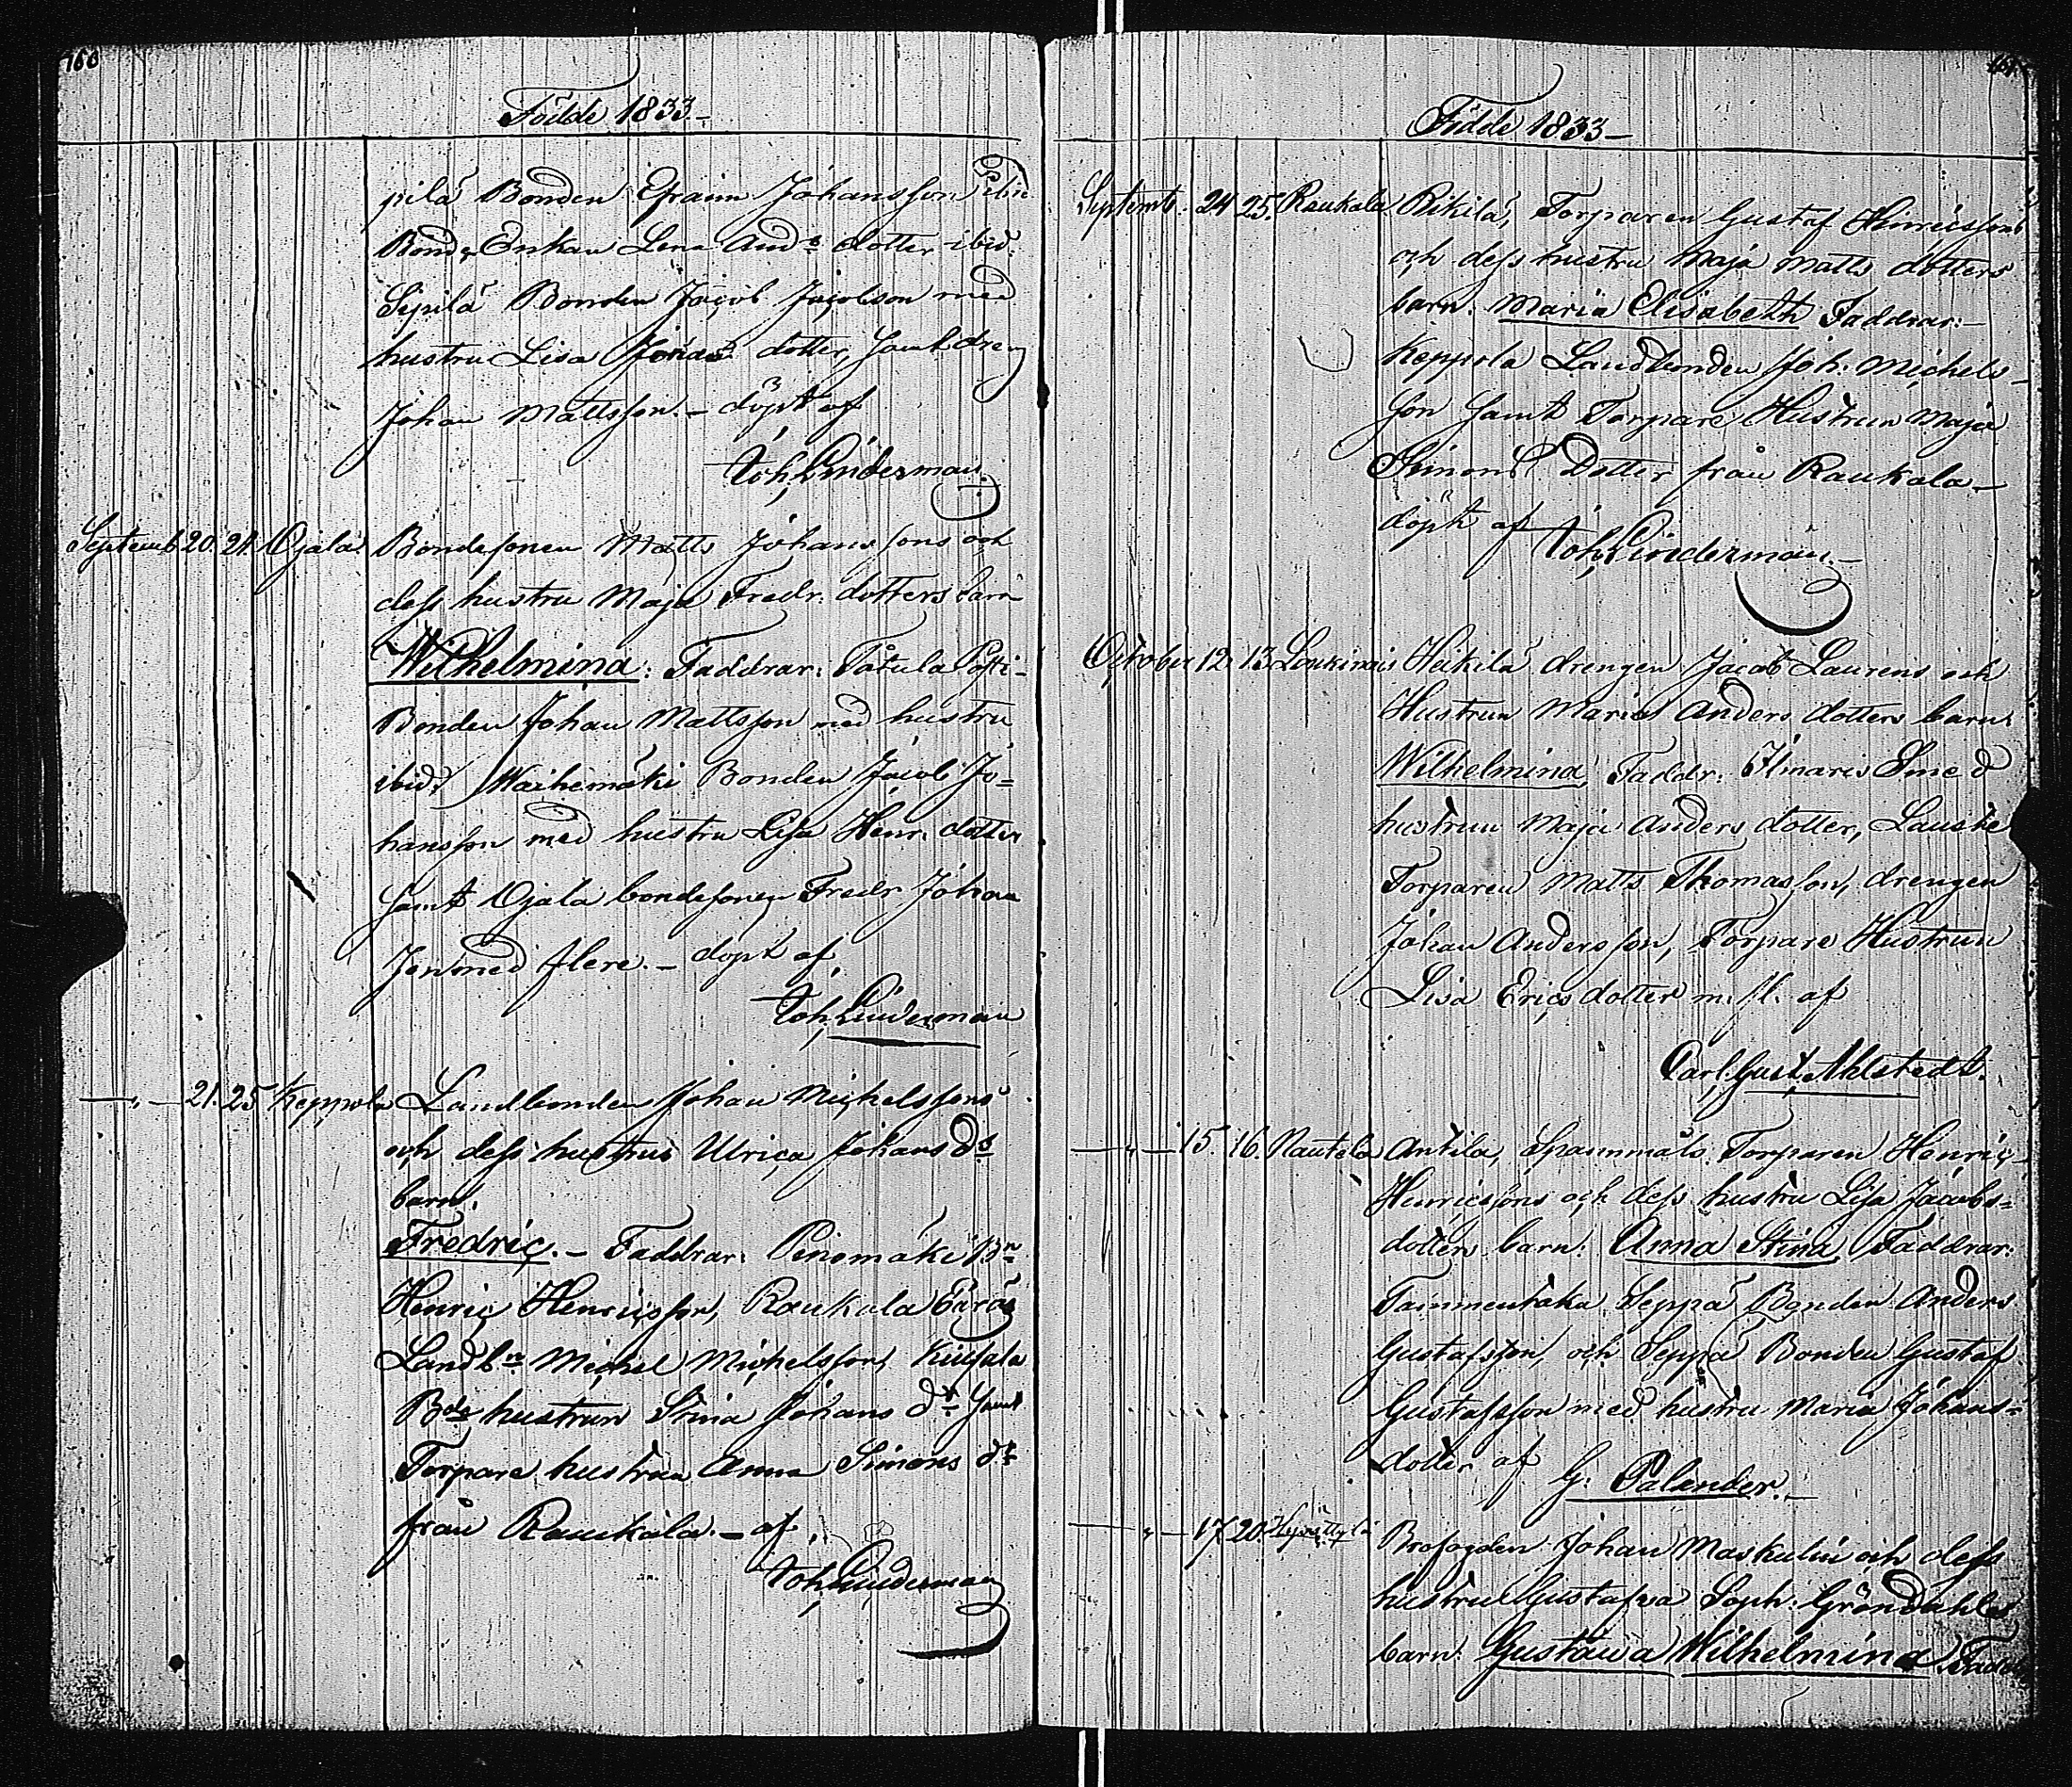 166
Födde 1833.-
pilä Bonden Efraim Johansson ibid
Bond Enkan Lena And:s dotter ibid
Sipilä Bonden Jacob Jacobson med
hustru Lisa Jonas dotter, samt dreng
Johan Mattsson.- döpt af
Joh, Linderman
Septemb 20. 21. Ojala. Bondesonen Matts Johanssons och
dess hustru Maja Fredr: dotters barn
Wilhelmina: Faddrar: Tåtula Posti-
Bonden Johan Mattsson med hustru
ibid. Waihemäki Bonden Jacob Jo=
hansson med hustru Lisa Henr: dotter
samt Ojala bondesonen Fredr Johan
son med flere.- döpt af
Joh, Linderman
—„— 21. 25 Keppola Landbonden Johan Michelssons
och dess hustrus Ulrica Johans d:s
barn.
Fredric.- Faddrar: Penomäki B:n
Henric Henricsson, Raukala Eerås
Landb:n Michel Michelsson,
B:de hustrun Stina Johans d:r samt
Torpare hustrun Anna Simons d:r
från Raukala.- af
Joh, Linderman
Födde 1833-
Septemb: 24 25. Raukala Rikilä, Torparen Gustaf Hinricssons
och dess hustru Maja Matts dotters
barn. Maria Elisabeth Faddrar:-
Keppola Landbonden Joh: Michels-
son samt Torpare Hustrun Maja
Simons Dotter från Raukala-
döpt af Joh, Linderman.-
October 12 13 Loukinais Heikilä drengen Jacob Laurens och
Hustrun Maria Anders dotters barn.
Wilhelmina Faddr: Ilmaris Smed
hustrun Maja Anders dotter, Lauste
Torparen Matts Thomasson, drengen
Johan Andersson, Torpare Hustrun
Lisa Erics dotter m. fl. af
Carl, Gust, Ahlstedt.
—„— 15. 16. Nautela Antila, Spannmåls Torparen Henric
Henricssons och dess hustru Lisa Jacobs=
dotters barn: Anna Stina Faddrar:
Tammentaka Seppä Bonden Anders
Gustafsson, och Seppä Bonden Gustaf
Gustafsson med hustru Maria Johans=
dotter af G: Palander.-
—„— 17 20. Brofogden Johan Maskulin och dess
hustru Gustafva Soph: Gröndahls
barn. Gustava Wilhelmina. Fadd